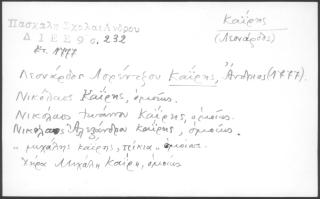 Πασχάλη Σχολαι Άνδρου
ΔΙΕΕ 9ο, 232
ἔτ. 1777
Καΐρης
(Λεονάρδος)
Λεονάρδος Λορέντζου Καΐρης, Άνδριος (1777).
Νικόλαος Καΐρης, ὁμοίως.
Νικόλαος Ιωάννου Καΐρης, ὁμοίως.
Νικόλαος Ἀλεξάνδρου Καΐρης, ὁμοίως.
„ Μιχάλης Καΐρης, „ ὁμοίως.
Χήρα Μιχάλη Καΐρη, ὁμοίως